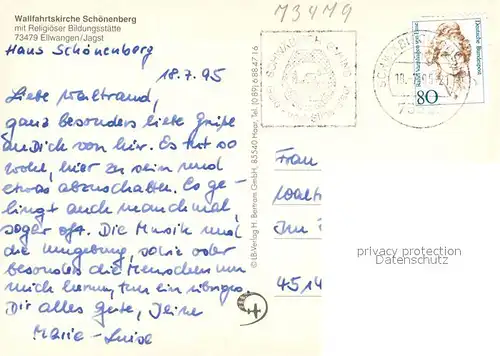 73479
Wallfahrtskirche Schönenberg
mit Religiöser Bildungsstätte
73479 Ellwangen/Jagst
Haus Schönenberg
18.7.95
Liebe Waltraud,
ganz besonders liebe Grüße
an Dich von hier. Es tut so
wohl, hier zu sein und
etwas abzuschalten. Es ge-
lingt auch manchmal,
sogar oft. Die Musik und
die Umgebung, sowie oder
besonders die Menschen um
mich herum, tun ein übriges.
Dir alles Gute, Deine
Marie-Luise
© LB-Verlag H. Bartram GmbH, 85540 Haar, Tel. (0 89) 6 88 47 16
Deutsche Bundespost
80
Frau
Waltrau
Im
4514
privacy protection
Datenschutz